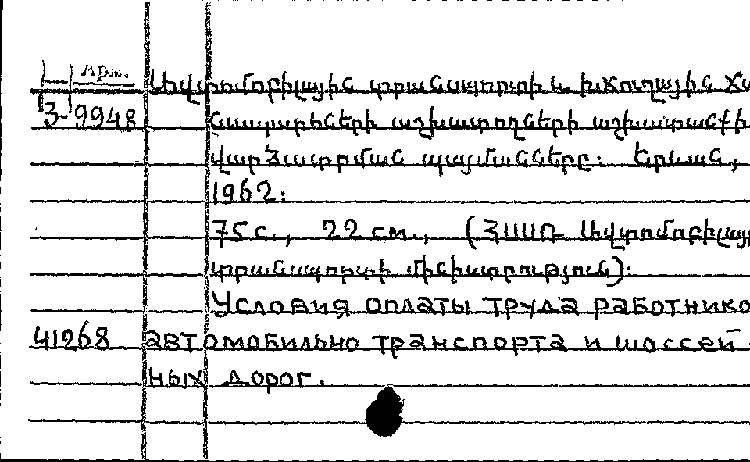 Арм.
Ավտոմոբիլային տրանսպորտի և խճուղային ճա
3-9948
նապարհների աշխատողների աշխատանքի
վարձատրման պայմանները: Երևան,
1962:
75 с., 22 см., (ՀՍՍՌ Ավտոմոբիլայ
տրանսպորտի մինիստրություն):
Условия оплаты труда работнико
41268 автомобильно транспорта и шоссей-
ных дорог.